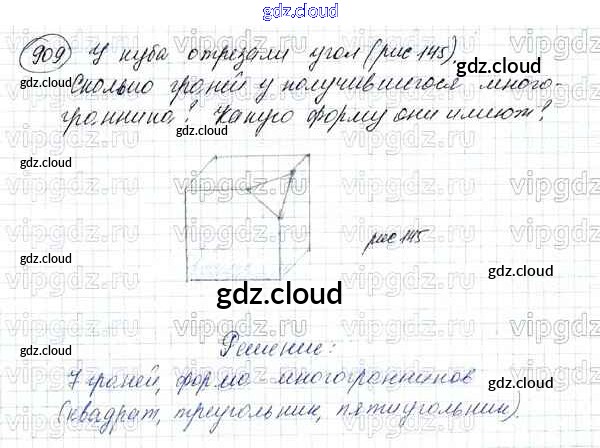 gdz.cloud
909 У куба отрезали угол (рис 145).
gdz.cloud
gdz.cloud
Сколько граней у получившегося много-
гранника? Какую форму они имеют?
gdz.cloud
gdz.cloud
gdz.cloud
рис 145
gdz.cloud
Решение:
gdz.cloud
7 граней, форма многогранников
(квадрат, треугольник, пятиугольник).
gdz.cloud